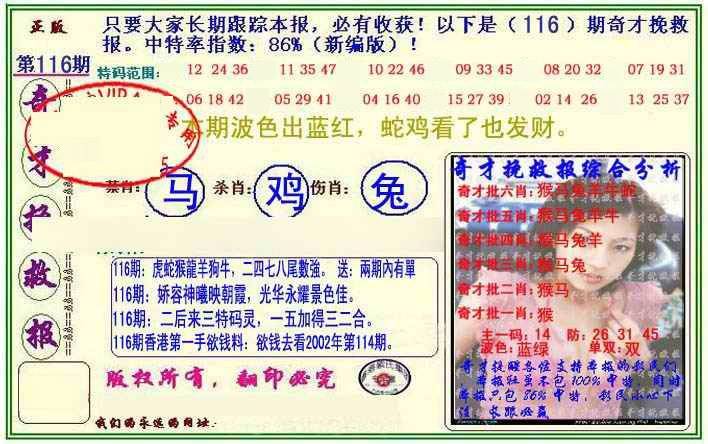 正版
只要大家长期跟踪本报，必有收获！以下是（116）期奇才挽救
报。中特率指数：86%（新编版）！
第116期
特码范围：
12 24 36 11 35 47 10 22 46 09 33 45 08 20 32 07 19 31
06 18 42 05 29 41 04 16 40 15 27 39 02 14 26 13 25 37
本期波色出蓝红，蛇鸡看了也发财。
奇
才
救
报
禁肖：马 杀肖：鸡 伤肖：兔
116期：虎蛇猴龍羊狗牛，二四七八尾數強。 送：兩期內有單
116期：娇容神曦映朝霞，光华永耀景色佳。
116期：二后来三特码灵，一五加得三二合。
116期香港第一手欲钱料：欲钱去看2002年第114期。
版权所有，翻印必究
我们的永远的网址：
奇才挽救报综合分析
奇才批六肖：猴马兔羊牛蛇
奇才批五肖：猴马兔羊牛
奇才批四肖：猴马兔羊
奇才批三肖：猴马兔
奇才批二肖：猴马
奇才批一肖：猴
主一码：14 防：26 31 45
波色：蓝绿 单双：双
奇才挽救各位支持本报的彩民们
本报社虽不包100%中特，同时
本报只包86%中特，彩民小心下
注，长跟必赢